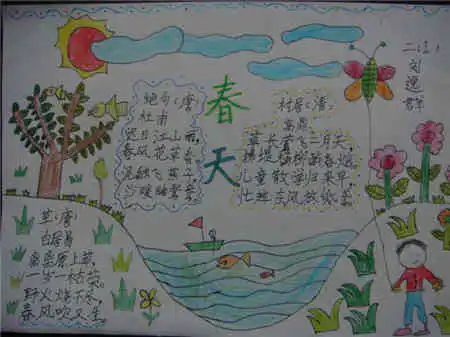 春天
绝句(唐)
杜甫
迟日江山丽,
春风花草香
泥融飞燕子
沙暖睡鸳鸯
村居(清)
高鼎
草长莺飞二月天
拂堤杨柳醉春烟
儿童散学归来早
忙趁东风放纸鸢
刘逸群
草(唐)
白居易
离离原上草,
一岁一枯荣。
野火烧不尽,
春风吹又生。